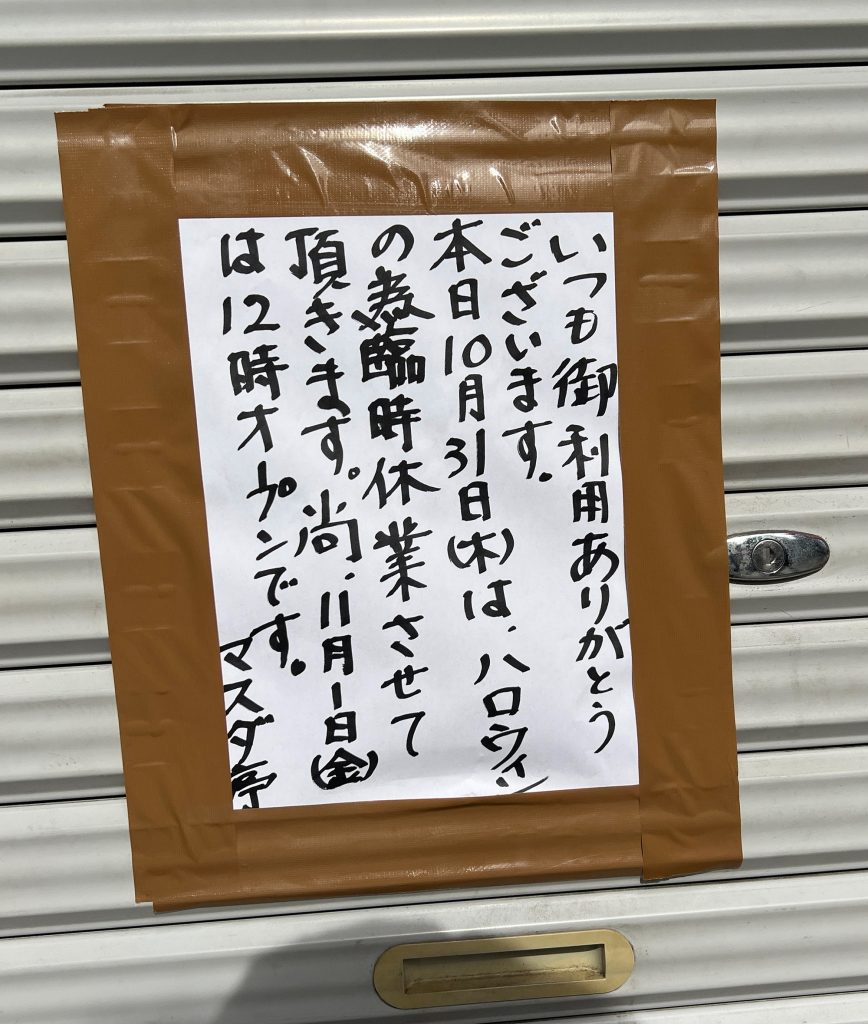 いつも御利用ありがとう
ございます。
本日10月31日(木)は、ハロウィン
の為臨時休業させて
頂きます。尚、11月1日(金)
は12時オープンです。
マスダ亭